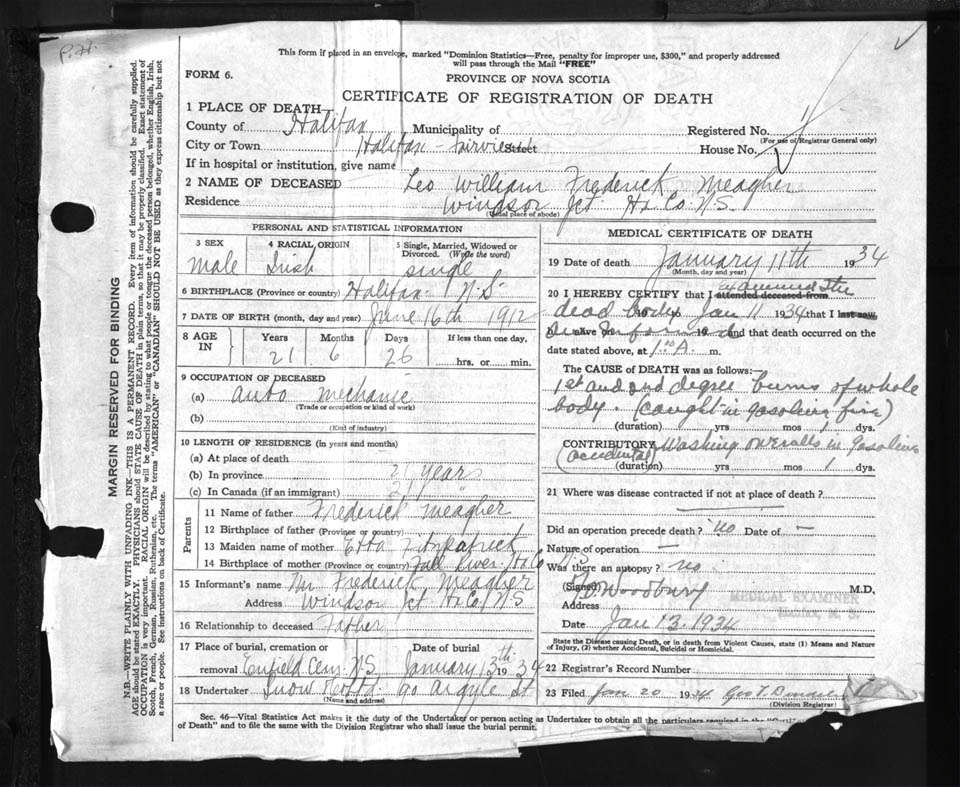 P.H.
This form if placed in an envelope, marked "Dominion Statistics—Free, penalty for improper use, $300," and properly addressed
will pass through the Mail "FREE"
FORM 6.
PROVINCE OF NOVA SCOTIA
CERTIFICATE OF REGISTRATION OF DEATH
1 PLACE OF DEATH
County of Halifax Municipality of Registered No.
(For use of Registrar General only)
City or Town Halifax - Fairview Street House No.
If in hospital or institution, give name
2 NAME OF DECEASED Leo William Frederick Meagher
Residence Windsor Jct. Hx. Co. N.S.
(Usual place of abode)
PERSONAL AND STATISTICAL INFORMATION
3 SEX 4 RACIAL ORIGIN 5 Single, Married, Widowed or
Divorced. (Write the word)
Male Irish single
6 BIRTHPLACE (Province or country) Halifax N.S.
7 DATE OF BIRTH (month, day and year) June 16th 1912
8 AGE IN Years Months Days If less than one day,
21 6 26 hrs. or min.
9 OCCUPATION OF DECEASED
(a) auto mechanic
(Trade or occupation or kind of work)
(b)
(Kind of industry)
10 LENGTH OF RESIDENCE (in years and months)
(a) At place of death
(b) In province 21 years
(c) In Canada (if an immigrant) 21 "
Parents
11 Name of father Frederick Meagher
12 Birthplace of father (Province or country)
13 Maiden name of mother Etta Fitzpatrick
14 Birthplace of mother (Province or country) Fall River Hx Co
15 Informant's name Mr. Frederick Meagher
Address Windsor Jct Hx Co. N.S.
16 Relationship to deceased Father
17 Place of burial, cremation or removal Enfield Cem. N.S.
Date of burial January 13th 1934
18 Undertaker Snow & Co Ltd. 90 Argyle St
(Name and address)
MEDICAL CERTIFICATE OF DEATH
19 Date of death January 11th 1934
(Month, day and year)
20 I HEREBY CERTIFY that I attended deceased from examined the
dead body Jan 11 1934 that I last saw
h alive on 19 and that death occurred on the
date stated above, at 1.00 A. m.
The CAUSE of DEATH was as follows:—
1st and 2nd degree burns of whole
body. (caught in gasoline fire)
(duration) yrs mos 1 dys.
CONTRIBUTORY Washing overalls in gasoline
(accidental)
(duration) yrs mos 1 dys.
21 Where was disease contracted if not at place of death?
Did an operation precede death? no Date of —
Nature of operation —
Was there an autopsy? no
(Signed) Woodbury M.D.
MEDICAL EXAMINER
Halifax, N. S.
Address
Date Jan 13. 1934
State the Disease causing Death, or in death from Violent Causes, state (1) Means and Nature
of Injury, (2) whether Accidental, Suicidal or Homicidal.
22 Registrar's Record Number
23 Filed Jan 20 1934 Geo
(Division Registrar)
Sec. 46—Vital Statistics Act makes it the duty of the Undertaker or person acting as Undertaker to obtain all the particulars required in the
of Death" and to file the same with the Division Registrar who shall issue the burial permit.
MARGIN RESERVED FOR BINDING
N.B.—WRITE PLAINLY WITH UNFADING INK—THIS IS A PERMANENT RECORD. Every item of information should be carefully supplied.
AGE should be stated EXACTLY. PHYSICIANS should STATE CAUSE OF DEATH in plain terms, so that it may be properly classified. Exact statement of
OCCUPATION is very important. RACIAL ORIGIN will be described by stating to what people or tongue the deceased person belonged, whether English, Irish,
Scotch, French, German, Russian, Ruthenian, etc. The terms "AMERICAN" or "CANADIAN" SHOULD NOT BE USED as they express citizenship but not
a race or people. See instructions on back of Certificate.